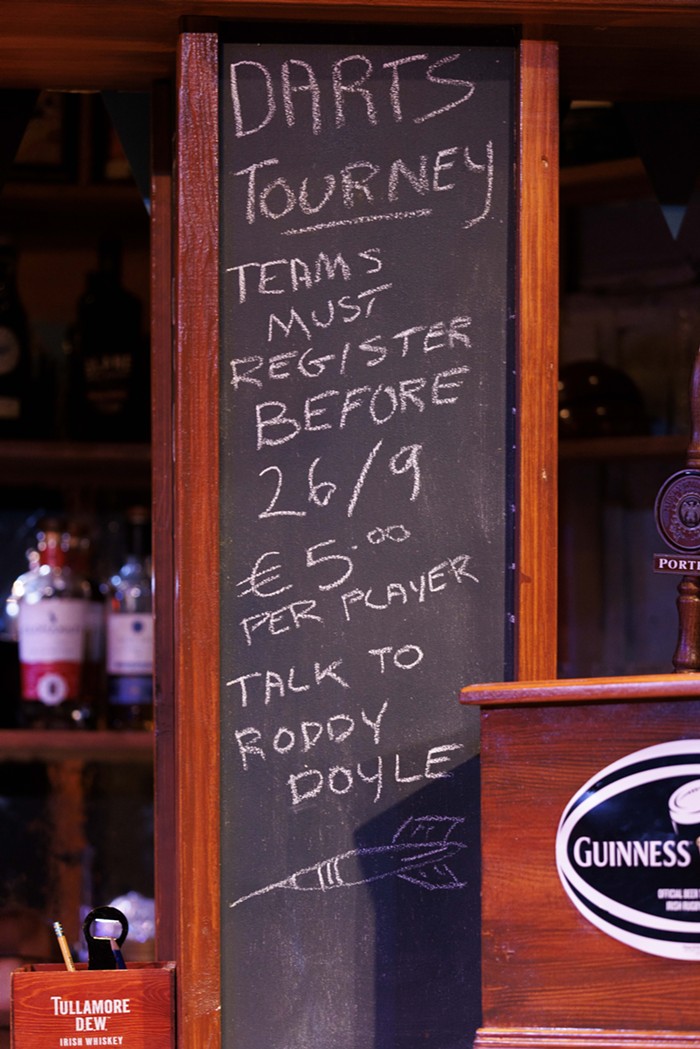 DARTS
TOURNEY
TEAMS
MUST
REGISTER
BEFORE
26/9
€5.00
PER PLAYER
TALK TO
RODDY
DOYLE
GUINNESS
OFFICIAL BEER
TULLAMORE
D.E.W.
IRISH WHISKEY